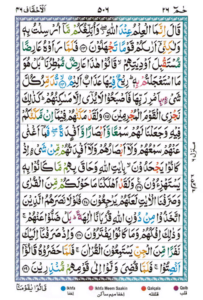 حٰمٓ ٢٦ ٥٠٦ الْاَحْقَاف ٤٦
قَالَ اِنَّمَا الْعِلْمُ عِنْدَ اللّٰهِ وَاُبَلِّغُكُمْ مَّآ اُرْسِلْتُ بِهٖ
وَلٰكِنِّيْٓ اَرٰىكُمْ قَوْمًا تَجْهَلُوْنَ فَلَمَّا رَاَوْهُ عَارِضًا
مُّسْتَقْبِلَ اَوْدِيَتِهِمْ قَالُوْا هٰذَا عَارِضٌ مُّمْطِرُنَا بَلْ هُوَ
مَا اسْتَعْجَلْتُمْ بِهٖ رِيْحٌ فِيْهَا عَذَابٌ اَلِيْمٌ تُدَمِّرُ كُلَّ
شَيْءٍ بِاَمْرِ رَبِّهَا فَاَصْبَحُوْا لَا يُرٰٓى اِلَّا مَسٰكِنُهُمْ كَذٰلِكَ
نَجْزِي الْقَوْمَ الْمُجْرِمِيْنَ وَلَقَدْ مَكَّنّٰهُمْ فِيْمَآ اِنْ مَّكَّنّٰكُمْ
فِيْهِ وَجَعَلْنَا لَهُمْ سَمْعًا وَّاَبْصَارًا وَّاَفْـِٕدَةً فَمَآ اَغْنٰى
عَنْهُمْ سَمْعُهُمْ وَلَآ اَبْصَارُهُمْ وَلَآ اَفْـِٕدَتُهُمْ مِّنْ شَيْءٍ اِذْ
كَانُوْا يَجْحَدُوْنَ بِاٰيٰتِ اللّٰهِ وَحَاقَ بِهِمْ مَّا كَانُوْا بِهٖ
يَسْتَهْزِءُوْنَ وَلَقَدْ اَهْلَكْنَا مَا حَوْلَكُمْ مِّنَ الْقُرٰى
وَصَرَّفْنَا الْاٰيٰتِ لَعَلَّهُمْ يَرْجِعُوْنَ فَلَوْلَا نَصَرَهُمُ الَّذِيْنَ
اتَّخَذُوْا مِنْ دُوْنِ اللّٰهِ قُرْبَانًا اٰلِهَةً بَلْ ضَلُّوْا عَنْهُمْ
وَذٰلِكَ اِفْكُهُمْ وَمَا كَانُوْا يَفْتَرُوْنَ وَاِذْ صَرَفْنَآ اِلَيْكَ
نَفَرًا مِّنَ الْجِنِّ يَسْتَمِعُوْنَ الْقُرْاٰنَ فَلَمَّا حَضَرُوْهُ قَالُوْٓا
اَنْصِتُوْا فَلَمَّا قُضِيَ وَلَّوْا اِلٰى قَوْمِهِمْ مُّنْذِرِيْنَ
قَالُوْا يٰقَوْمَنَآ